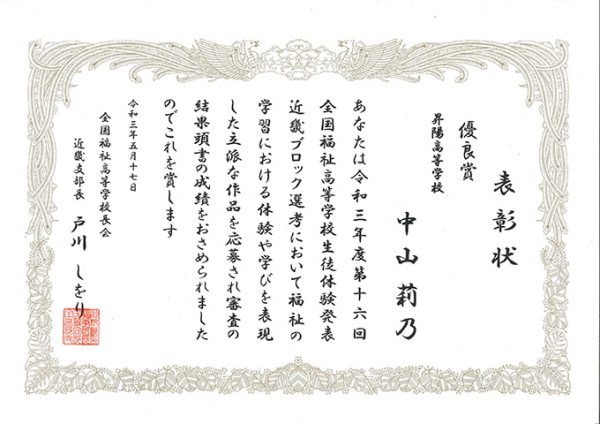 表彰状
優良賞
昇陽高等学校
中山莉乃
あなたは令和三年度第十六回
全国福祉高等学校生徒体験発表
近畿ブロック選考において福祉の
学習における体験や学びを表現
した立派な作品を応募され審査の
結果頭書の成績をおさめられました
のでこれを賞します
令和三年五月十七日
全国福祉高等学校長会
近畿支部長 戸川しをり